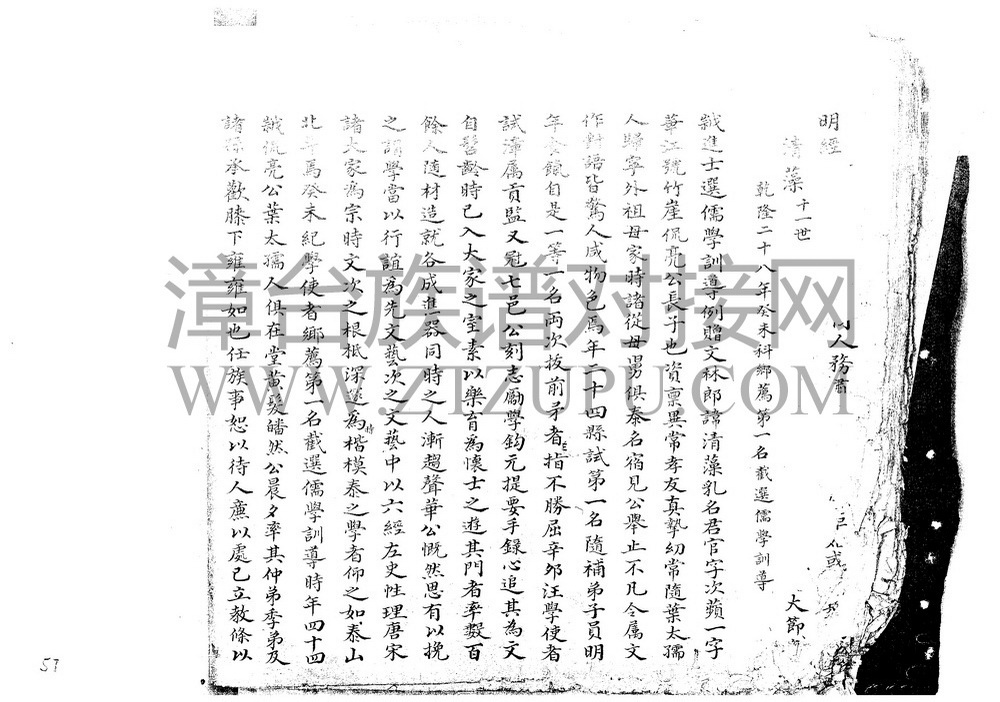 明經
人務
大節
清藻十一世
乾隆二十八年癸未科鄉薦第一名截選儒學訓導
敕進士選儒學訓導例贈文林郎諱清藻乳名君官字次蘋一字
華江號竹崖侃亮公長子也資稟異常孝友真摯幼常隨葉太孺
人歸寧外祖母家時諸從母舅俱泰名宿見公舉止不凡令屬文
作對語皆驚人咸物色焉年二十四縣試第一名隨補弟子員明
年食餼自是一等一名兩次拔前矛者指不勝屈辛卯汪學使者
試漳屬貢監又冠七邑公刻志勵學鈎元提要手錄心追其為文
自髫齡時已入大家之室素以樂育為懷士之遊其門者率數百
餘人隨材造就各成進器同時之人漸趨聲華公慨然思有以挽
之謂學當以行誼為先文藝次之文藝中以六經左史性理唐宋
諸大家為宗時文次之根柢深邃為時楷模泰之學者仰之如泰山
北斗焉癸未紀學使者鄉薦第一名截選儒學訓導時年四十四
歲侃亮公葉太孺人俱在堂黃髮皤然公晨夕率其仲弟季弟及
諸孫承歡膝下雍雍如也任族事恕以待人廉以處己立教條以
57
漳台族谱对接网
WWW.ZTZUPU.COM